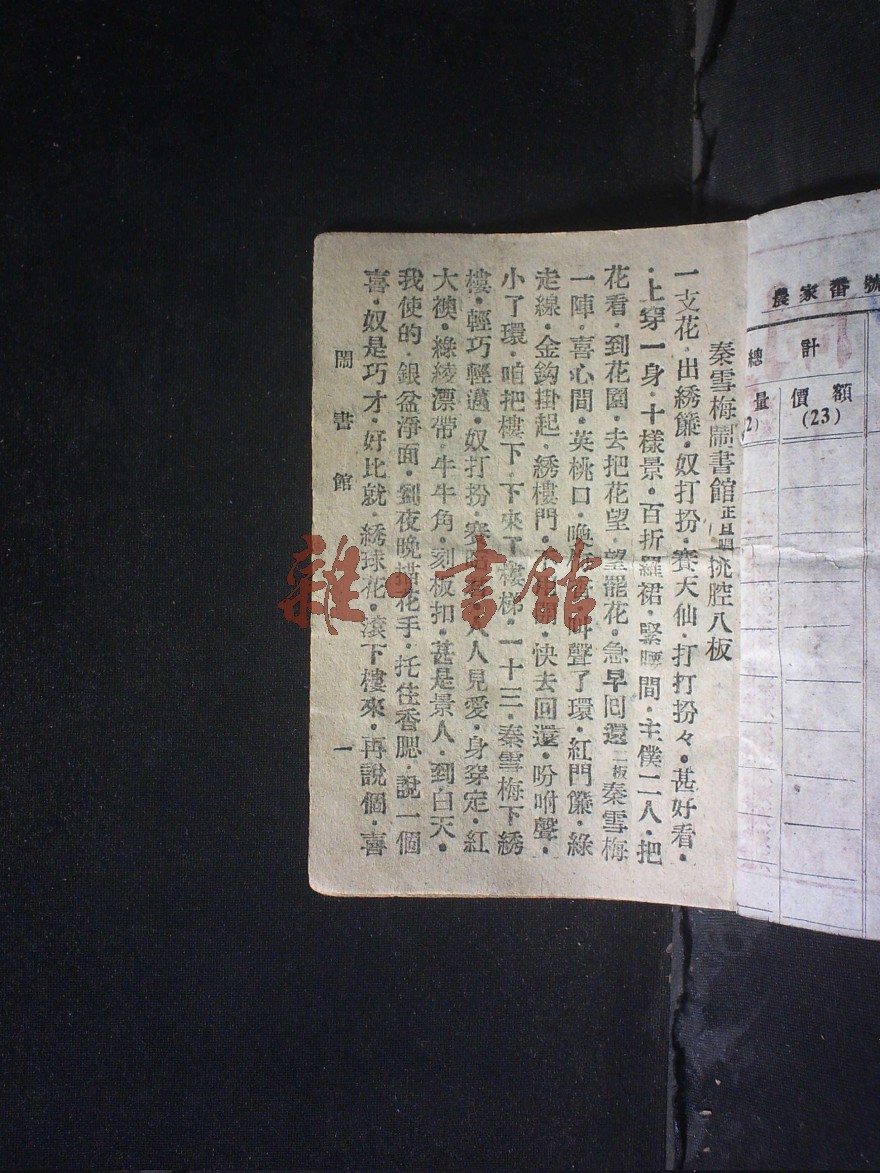 秦雪梅鬧書館 正旦唱 挑腔八板
一支花·出綉簾·奴打扮·賽天仙·打打扮々·甚好看·
·上穿一身·十樣景·百折羅裙·緊腰間·主僕二人·把
花看·到花園·去把花望·望罷花·急早回還 二板 秦雪梅
一陣·喜心間·英桃口·喚 聲了環·紅門簾·綠
走線·金鈎掛起·綉樓門· 快去回還·吩咐聲·
小了環·咱把樓下·下來了樓梯·一十三·秦雪梅下綉
樓·輕巧輕邁·奴打扮·賽 人人見愛·身穿定·紅
大襖·綠綾漂帶·牛牛角·刻板扣·甚是景人·到白天·
我使的·銀盆淨面·到夜晚描花手·托住香腮·說一個
喜·奴是巧才·好比就·綉球花·滾下樓來·再說個·喜
鬧書館 一
雜·書館
農家番號
總計
價額
量
(23)
2)